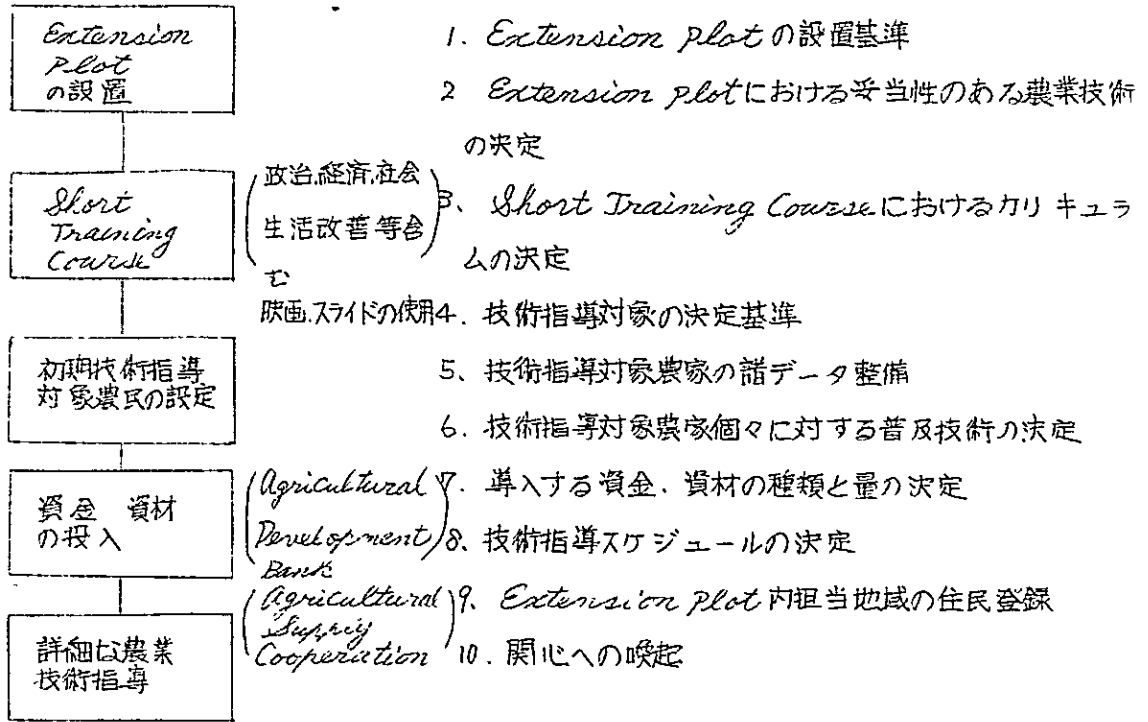 Extension
Plot
の設置
Short
Training
Course
初期技術指導
対象農民の設定
資金 資材
の投入
詳細な農業
技術指導
(政治.経済.社会
生活改善等含
む)
映画.スライドの使用
(Agricultural
Development
Bank)
(Agricultural
Supply
Cooperation)
1. Extension Plotの設置基準
2 Extension Plotにおける妥当性のある農業技術
の決定
3、Short Training Courseにおけるカリキュラ
ムの決定
4. 技術指導対象の決定基準
5、技術指導対象農家の諸データ整備
6. 技術指導対象農家個々に対する普及技術の決定
7. 導入する資金.資材の種類と量の決定
8、技術指導スケジュールの決定
9、Extension Plot内担当地域の住民登録
10. 関心への喚起